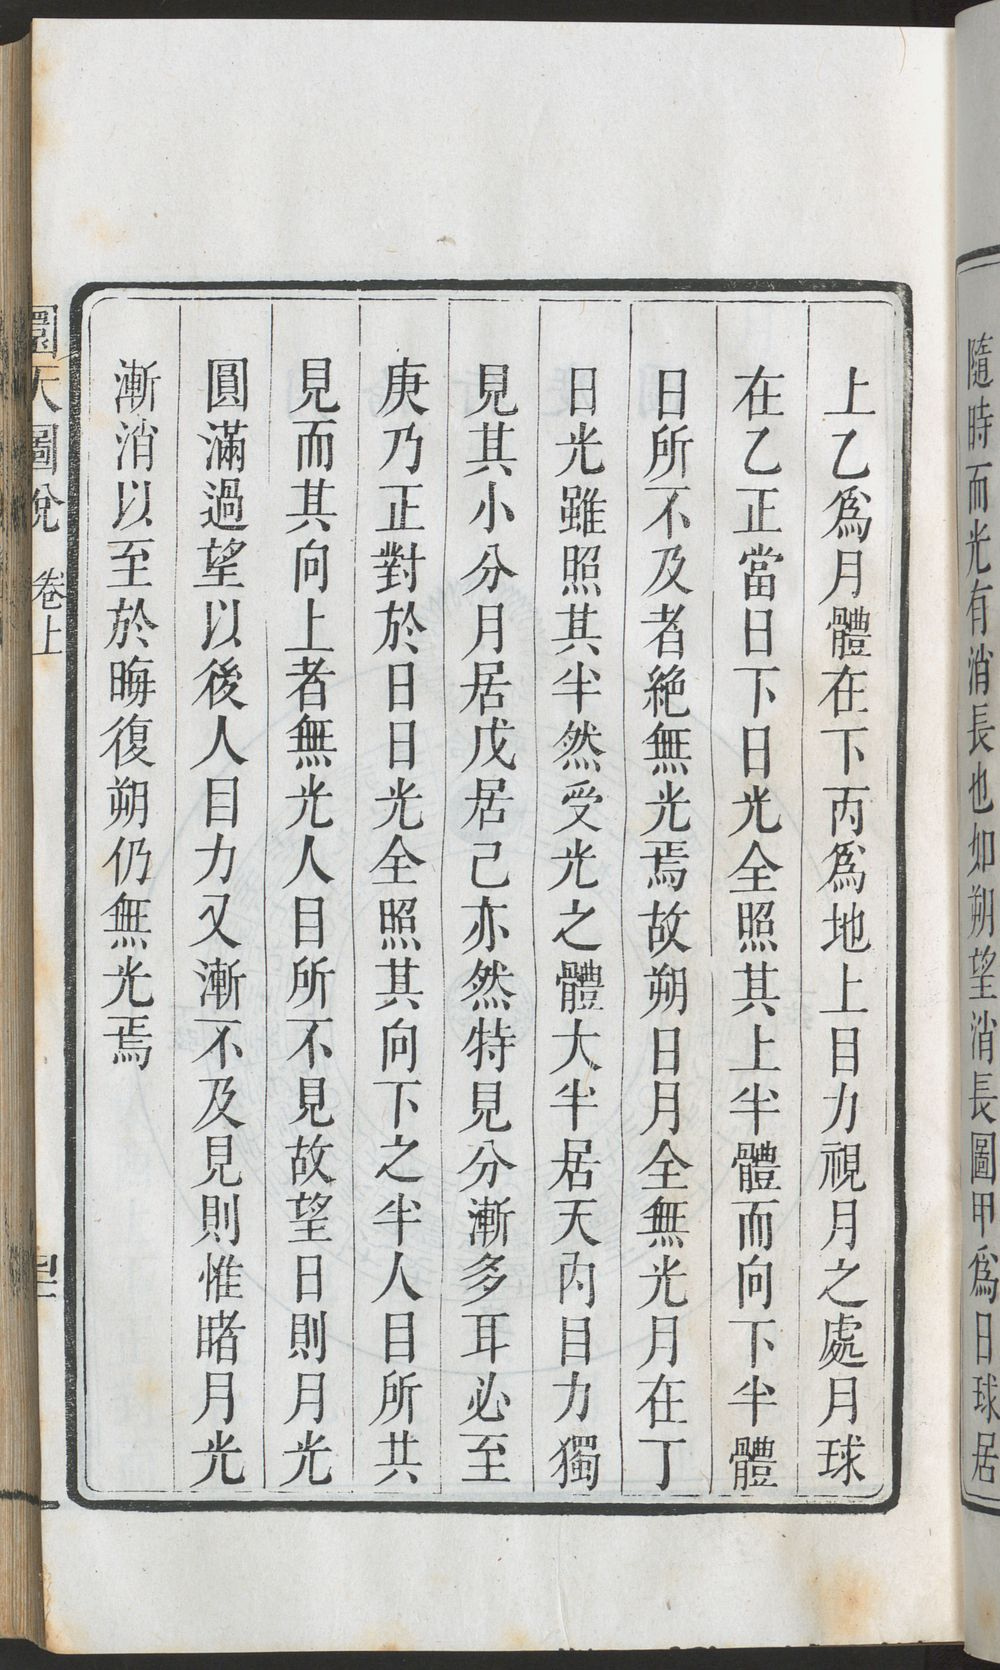 隨時而光有消長也如朔望消長圖甲爲日球居
上乙爲月體在下丙爲地上目力視月之處月球
在乙正當日下日光全照其上半體而向下半體
日所不及者絶無光焉故朔日月全無光月在丁
日光雖照其半然受光之體大半居天內目力獨
見其小分月居戊居己亦然特見分漸多耳必至
庚乃正對於日日光全照其向下之半人目所共
見而其向上者無光人目所不見故望日則月光
圓滿過望以後人目力又漸不及見則惟睹月光
漸消以至於晦復朔仍無光焉
圜天圖說 卷上